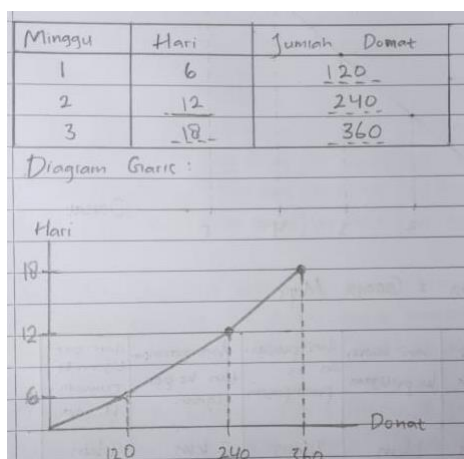 Minggu Hari Jumlah Domat
1 6 120
2 12 240
3 18 360
Diagram Garis :
Hari
18
12
6
Donat
120 240 360